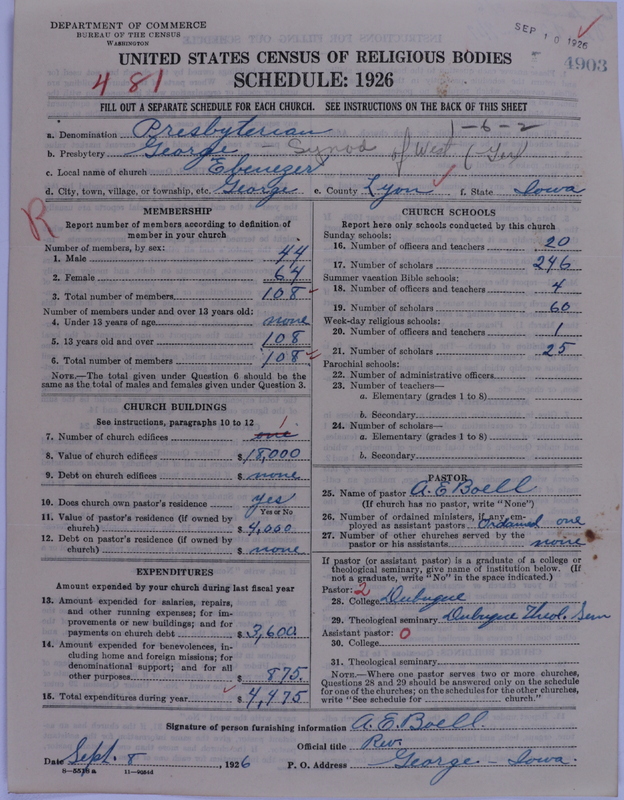 DEPARTMENT OF COMMERCE
BUREAU OF THE CENSUS
WASHINGTON
SEP 10 1926
4903
UNITED STATES CENSUS OF RELIGIOUS BODIES
SCHEDULE: 1926
481
FILL OUT A SEPARATE SCHEDULE FOR EACH CHURCH. SEE INSTRUCTIONS ON THE BACK OF THIS SHEET
a. Denomination Presbyterian 1-6-2
b. Presbytery George - Synod of West (Ger)
c. Local name of church Ebenezer
d. City, town, village, or township, etc. George e. County Lyon f. State Iowa
R
MEMBERSHIP
Report number of members according to definition of member in your church
Number of members, by sex:
1. Male 44
2. Female 64
3. Total number of members 108
Number of members under and over 13 years old:
4. Under 13 years of age none
5. 13 years old and over 108
6. Total number of members 108
NOTE.—The total given under Question 6 should be the same as the total of males and females given under Question 3.
CHURCH BUILDINGS
See instructions, paragraphs 10 to 12
7. Number of church edifices one 1
8. Value of church edifices $ 18,000
9. Debt on church edifices $ none
10. Does church own pastor's residence yes
Yes or No
11. Value of pastor's residence (if owned by church) $ 4,000
12. Debt on pastor's residence (if owned by church) $ none
EXPENDITURES
Amount expended by your church during last fiscal year
13. Amount expended for salaries, repairs, and other running expenses; for improvements or new buildings; and for payments on church debt $ 3,600
14. Amount expended for benevolences, including home and foreign missions; for denominational support; and for all other purposes $ 875.
15. Total expenditures during year $ 4,475
CHURCH SCHOOLS
Report here only schools conducted by this church
Sunday schools:
16. Number of officers and teachers 20
17. Number of scholars 246
Summer vacation Bible schools:
18. Number of officers and teachers 4
19. Number of scholars 60
Week-day religious schools:
20. Number of officers and teachers 1
21. Number of scholars 25
Parochial schools:
22. Number of administrative officers
23. Number of teachers—
a. Elementary (grades 1 to 8)
b. Secondary
24. Number of scholars—
a. Elementary (grades 1 to 8)
b. Secondary
PASTOR
25. Name of pastor A. E. Boell
(If church has no pastor, write "None")
26. Number of ordained ministers, if any, employed as assistant pastors Ordained one
27. Number of other churches served by the pastor or his assistants none
If pastor (or assistant pastor) is a graduate of a college or theological seminary, give name of institution below. (If not a graduate, write "No" in the space indicated.)
Pastor: 2
28. College Dubuque
29. Theological seminary Dubuque Theol. Sem
Assistant pastor: 0
30. College
31. Theological seminary
NOTE.—Where one pastor serves two or more churches, Questions 28 and 29 should be answered only on the schedule for one of the churches; on the schedules for the other churches, write "See schedule for church."
Signature of person furnishing information A. E. Boell.
Official title Rev.
Date Sept. 8, 1926 P. O. Address George - Iowa.
8-5518 a